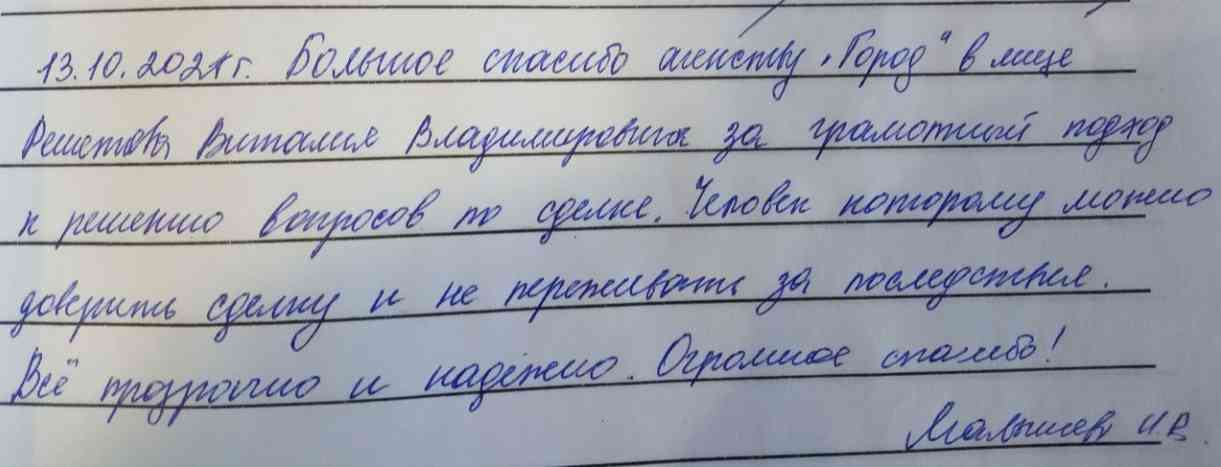 13.10.2021г. Большое спасибо агенству "Город" в лице
Решетова Виталия Владимировича за грамотный подход
к решению вопросов по сделке. Человек которому можно
доверить сделку и не переживать за последствия.
Всё прозрачно и надёжно. Огромное спасибо!
Малышев И.В.